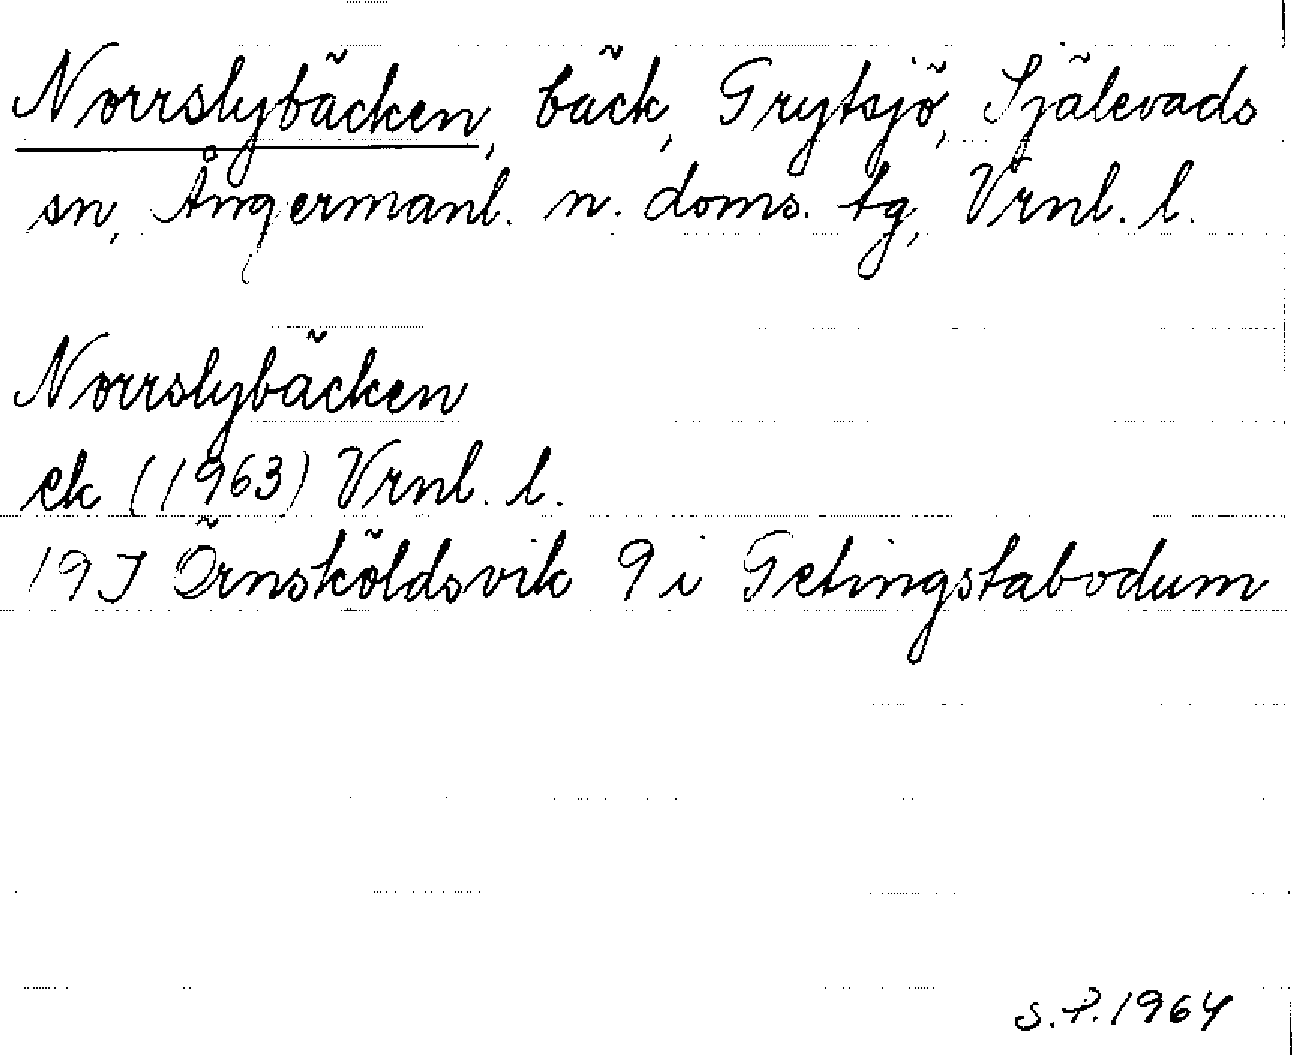 Norrslybäcken, bäck, Grytsjö, Själevads
sn, Ångermanl. n. doms. tg, Vrnl. l.
Norrslybäcken
ek (1963) Vrnl. l.
19J Örnsköldsvik 9 i Getingstabodum
S.P. 1964